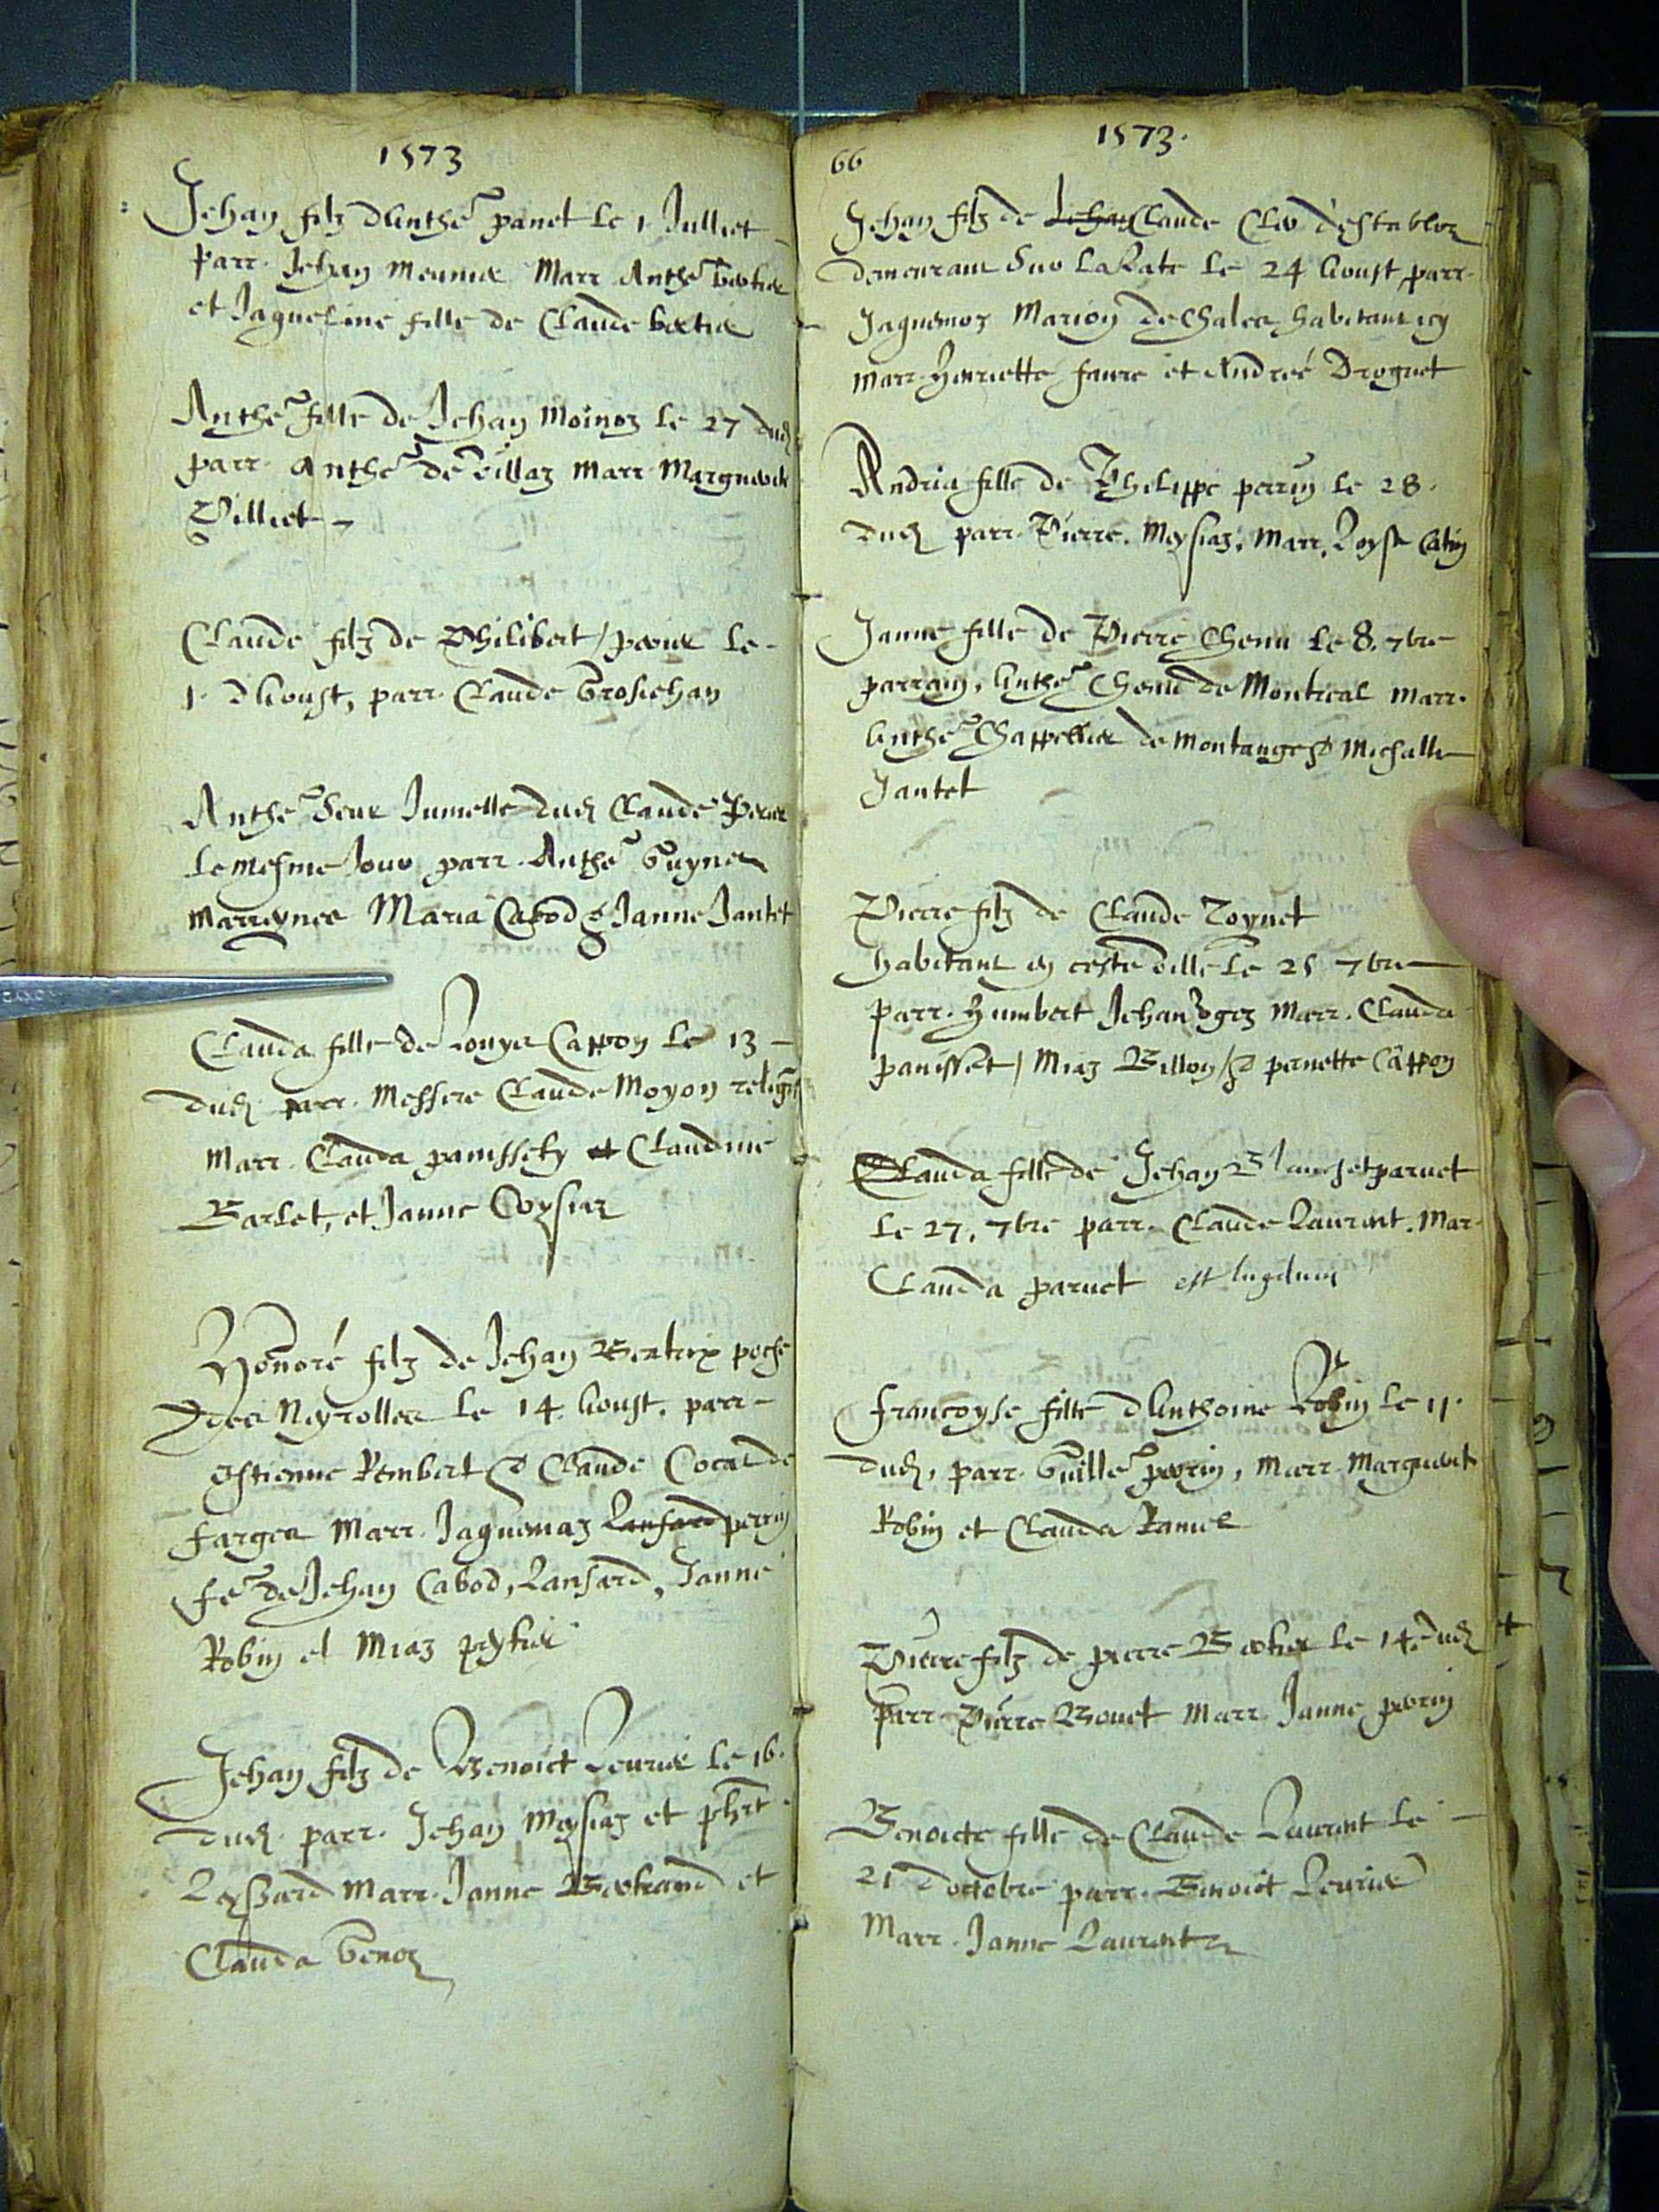 1573
Jehan filz d'Anthe panet le 1 Julliet
parr. Jehan Meunier Marr Anthe bertier
et Jaqueline fille de Claude bertier
Anthe fille de Jehan Moinoz le 27 dud
parr. Anthe de Villaz Marr. Marguerite
Villiet
Claude filz de Philibert perier le
1. d'Aoust, parr. Claude Grosjehan
Anthe seur Jumelle dud Claude Perier
le mesme jour parr. Anthe Guynes
Marreynes Maria Cabod & Janne Jantet
Clauda fille de Louys Cappon le 13
dud parr. Messire Claude Moyon relig
Marr. Clauda panissety et Claudine
Barlet, et Janne Coysiaz
Honoré filz de Jehan Bertrix poche
des Neyrolles le 14 Aoust. parr
Estienne Rembert & Claude Cocal de
farges Marr. Jaquemaz Lansard perrin
fe de Jehan Cabod, Lansard, Janne
Robin et Miaz peytier
Jehan filz de Benoict Levrier le 16.
dud parr. Jehan Meysiaz et phit
Leyssard Marr. Janne Bertrand et
Clauda Genoz
66
1573.
Jehan filz de Jehan Claude Cler d'establoz
demeurant sur la Rate le 24 Aoust parr.
Jaquemoz Marion de Chales habitant icy
Marr. Henriette faure et Andreé Droguet
Andria fille de Phelippe perrin le 28.
dud parr. Pierre Meysiaz, Marr, Loyse Catin
Janne fille de Pierre Chenu le 8. 7bre
parrain, Anthe Chenu de Montreal Marr.
Anthe Chappellier de Montanges & Michalle
Jantet
Pierre filz de Claude Toynet
habitant en ceste ville le 25 7bre
parr. Humbert Jehan Marr. Clauda
panisset / Miaz Billon / & pernette Cappon
Clauda fille de Jehan Blanchet paruet
le 27, 7bre parr. Claude Laurent. Mar
Clauda paruet est lugduni
francoyse fille d'Anthoine Robin le 11.
dud, parr. Guille perrin, Marr. Marguerite
Robin et Clauda Ramel
Pierre filz de pierre Bertier le 14e dud
parr. Pierre Bouet Marr. Janne perrin
Benoicte fille de Claude Laurent le
21 d'octobre parr. Benoict Levrier
Marr. Janne Laurent